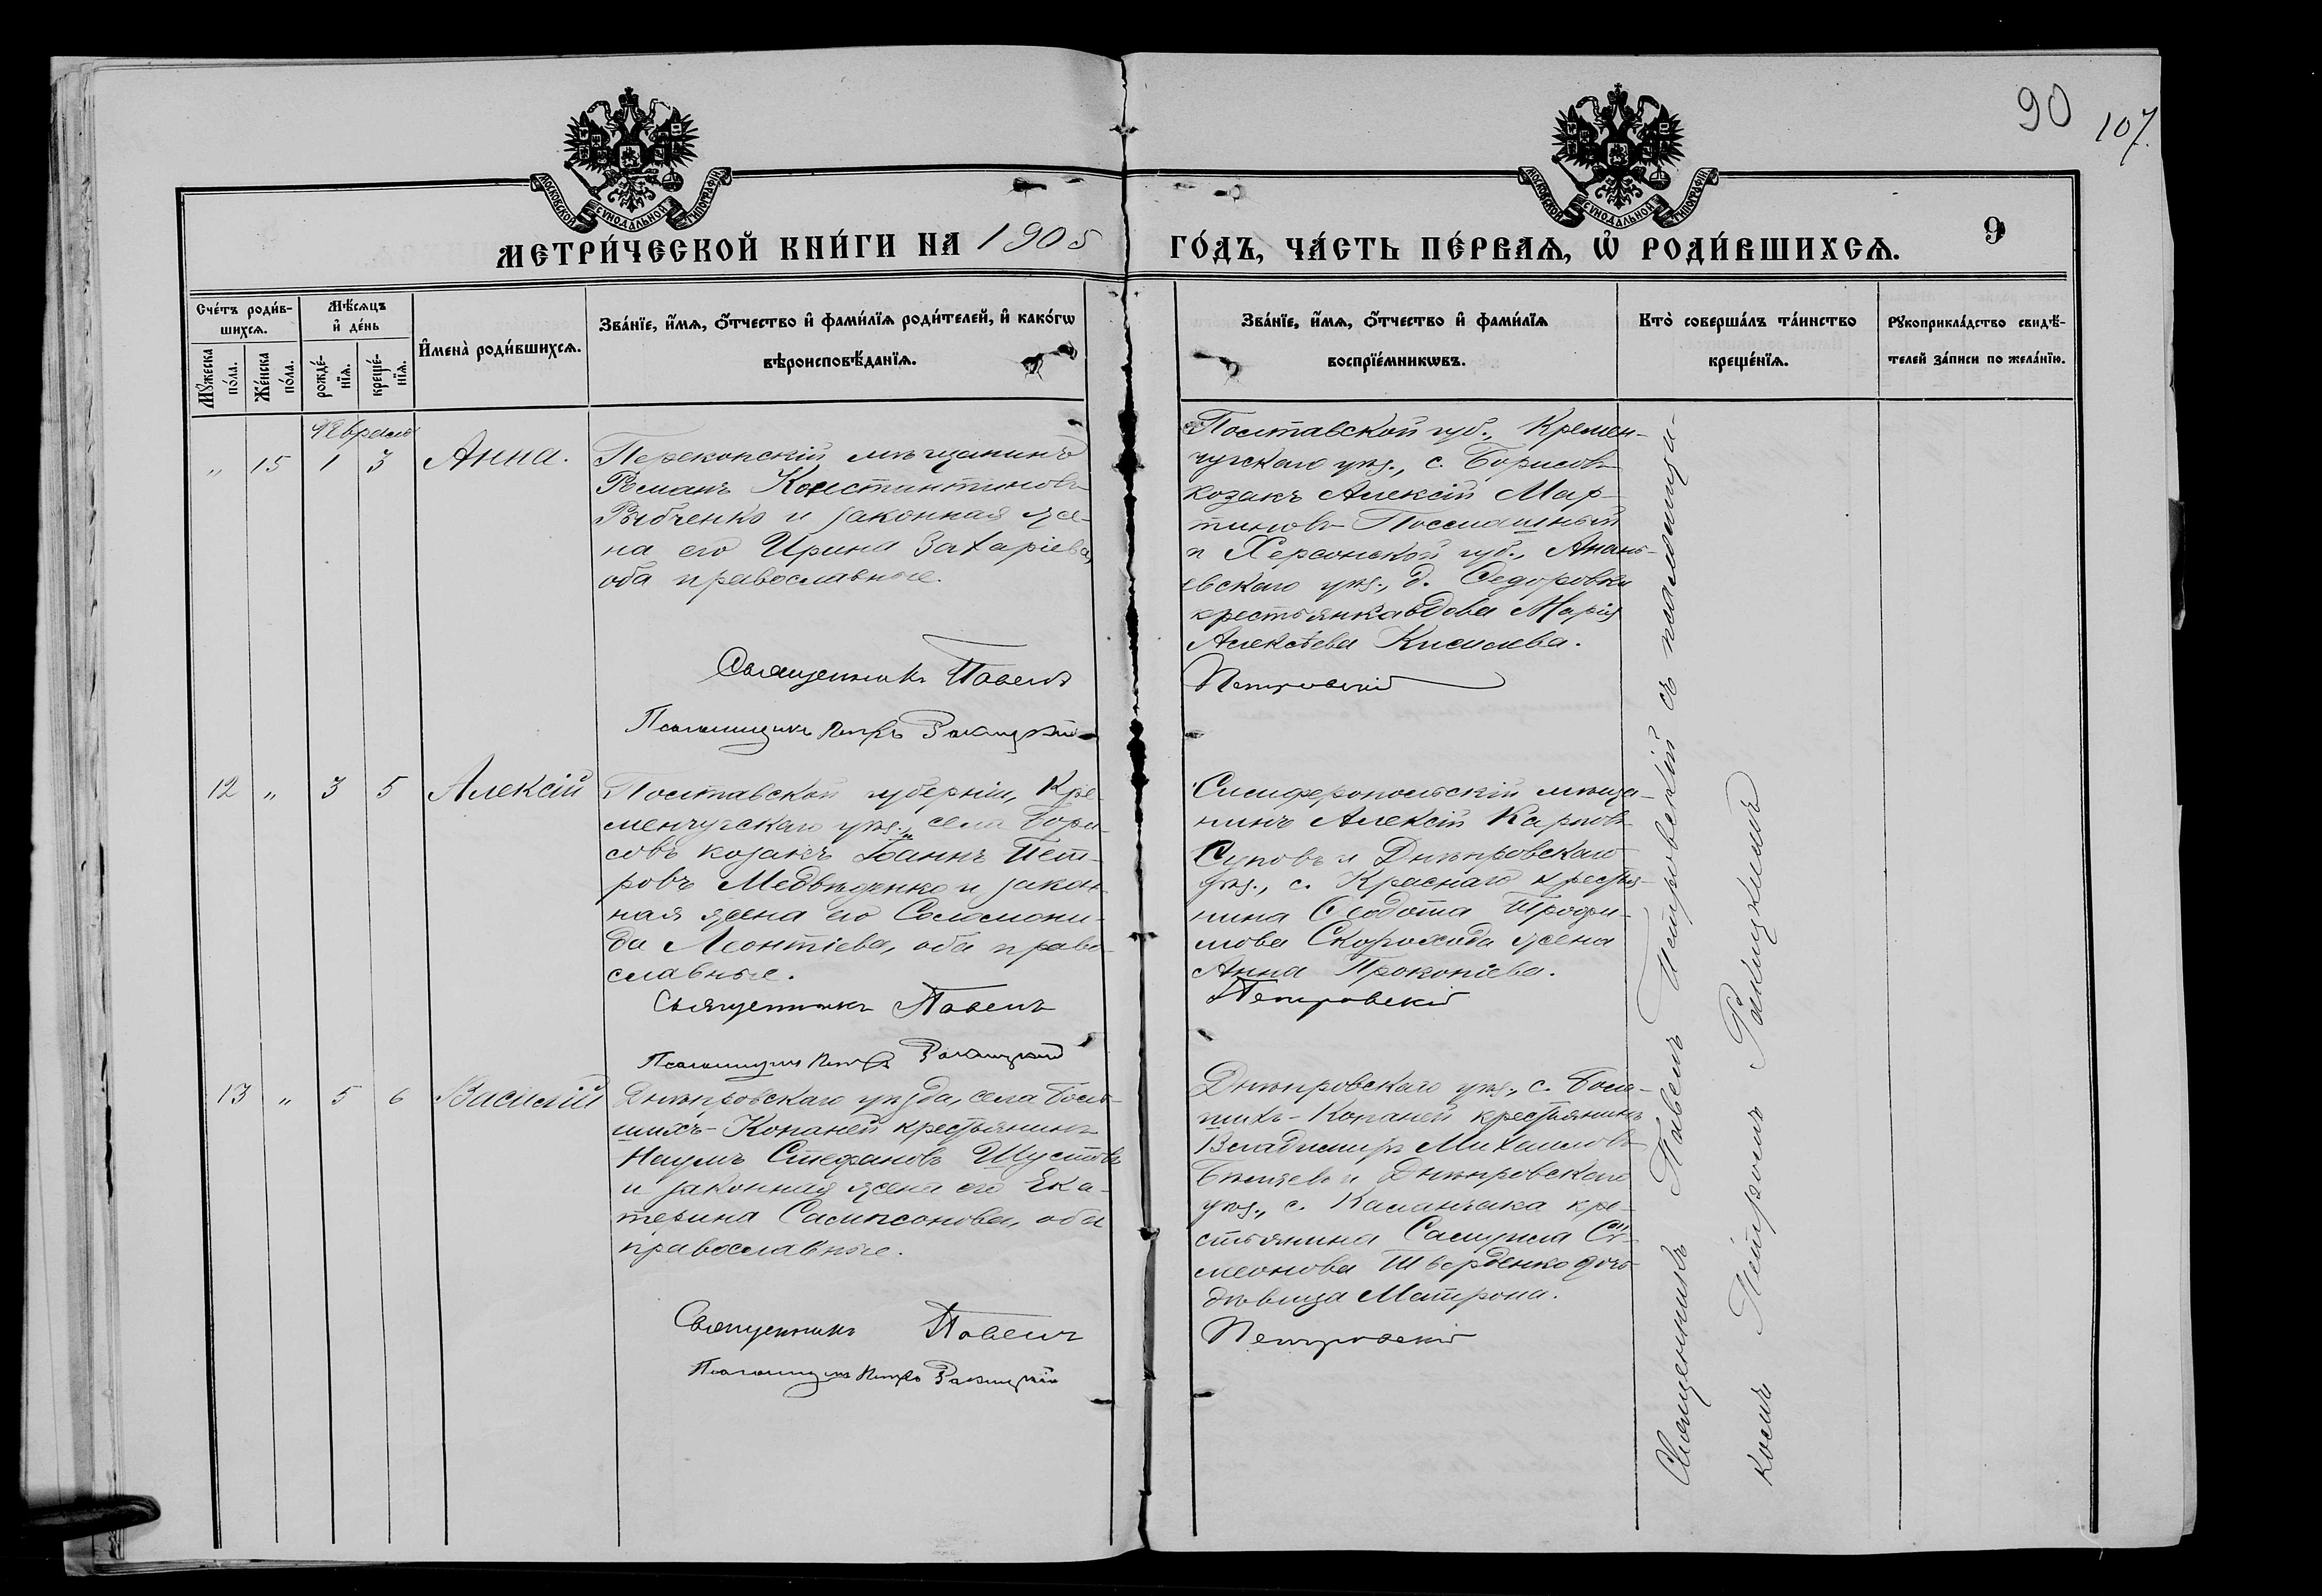 90
107.
МОСКОВСКОЙ СУНОДАЛЬНОЙ ТИПОГРАФІИ
МОСКОВСКОЙ СУНОДАЛЬНОЙ ТИПОГРАФІИ
МЕТРИ́ЧЕСКОЙ КНИ́ГИ НА 1905
ГО́ДЪ, ЧА́СТЬ ПЕ́РВАѦ, Ѡ҆ РОДИ́ВШИХСѦ.
9
Сче́тъ роди́в-
шихсѧ.
Мꙋ́жеска
по́ла.
Же́нска
по́ла.
Мѣ́сѧцъ
и҆ де́нь
рожде́-
нїѧ.
креще́-
нїѧ.
И҆мена̀ роди́вшихсѧ.
Зва́нїе, и҆́мѧ, ѻ҆́тчество и҆ фами́лїѧ роди́телей, и҆ како́гѡ
вѣроисповѣ́данїѧ.
Зва́нїе, и҆́мѧ, ѻ҆́тчество и҆ фами́лїѧ
воспрїе́мникѡвъ.
Кто̀ соверша́лъ та́инство
креще́нїѧ.
Рꙋкоприкла́дство свидѣ́-
телей за́писи по жела́нїю.
Февраль
" 15 1 3 Анна.
Перекопскій мѣщанинъ
Романъ Константиновъ
Рыбченко и законная же-
на его Ирина Захаріева,
оба православные.
Священникъ Павелъ
Псаломщикъ Петръ Ракицкій
Полтавской губ., Кремен-
чугскаго уѣз., с. Борисовъ
козакъ Алексій Мар-
тиновъ
и Херсонской губ., Анань-
евскаго уѣз., д. Ѳедоровки
крестьянка вдова Марія
Алексѣева Киселева.
Петровскій
12 " 3 5 Алексій
Полтавской губерніи, Кре-
менчугскаго уѣз., села Бори-
совъ козакъ Іоаннъ Пет-
ровъ Медвѣденко и закон-
ная жена его Соломони-
да Леонтіева, оба право-
славные.
Священникъ Павелъ
Псаломщикъ Петръ Ракицкій
Симферопольскій мѣща-
нинъ Алексій Карповъ
Суповъ и Днѣпровскаго
уѣз., с. Краснаго крестья-
нина Ѳеодота Трофи-
мова Скорохода жена
Анна Прокопіева.
Петровскій
13 " 5 6 Василій
Днѣпровскаго уѣзда, села Боль-
шихъ-Копаней крестьянинъ
Наумъ Стефановъ Шустовъ
и законная жена его Ека-
терина Сампсонова, оба
православные.
Священникъ Павелъ
Псаломщикъ Петръ Ракицкій
Днѣпровскаго уѣз., с. Боль-
шихъ-Копаней крестьянинъ
Владимиръ Михаиловъ
Бѣляевъ и Днѣпровскаго
уѣз., с. Каланчака кре-
стьянина Самуила Си-
меонова Тверденко дочь
дѣвица Матрона.
Петровскій
Священникъ Павелъ Петровскій съ псаломщи-
комъ Петромъ Ракицкимъ